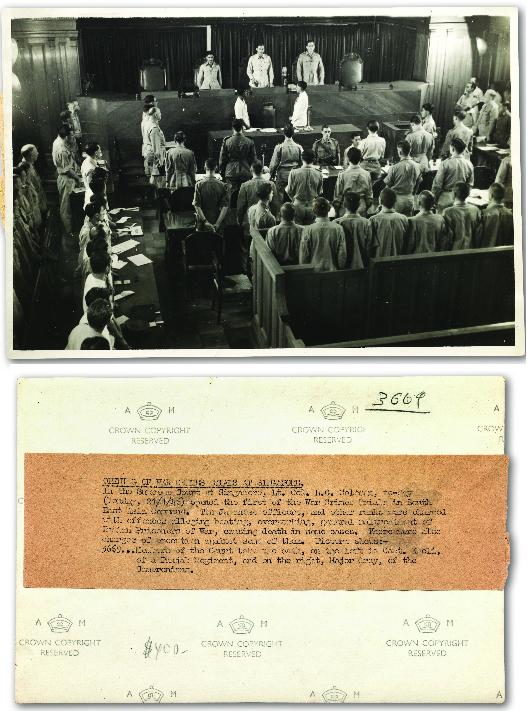 3669
A M
CROWN COPYRIGHT
RESERVED
A M
CROWN COPYRIGHT
RESERVED
A
CROWN
R
OPENING OF WAR CRIMES TRIALS AT SINGAPORE.
In the Supreme Court at Singapore, Lt. Col. L.G. to-day
(Monday, opened the first of the War Crimes Trials in South
East Asia Command. Ten Japanese officers, and other ranks were charged
with offences alleging beating, overworking, general of
Indian Prisoners of War, causing death in some cases. There were also
charges of against some of them. Picture shows:-
3669...Members of the Court take the oath, on the left is Capt.
of a Punjab Regiment, and on the right, Major Gray, of the
A M
CROWN COPYRIGHT
RESERVED
A M
CROWN COPYRIGHT
RESERVED
A M
CROWN COPYRIGHT
RESERVED
$400-
A M
A M